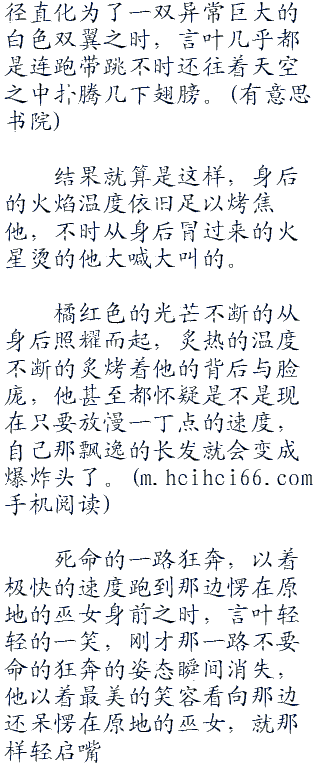 径直化为了一双异常巨大的
白色双翼之时，言叶几乎都
是连跑带跳不时还往着天空
之中扑腾几下翅膀。(有意思
书院)
结果就算是这样，身后
的火焰温度依旧足以烤焦
他，不时从身后冒过来的火
星烫的他大喊大叫的。
橘红色的光芒不断的从
身后照耀而起，炙热的温度
不断的炙烤着他的背后与脸
庞，他甚至都怀疑是不是现
在只要放慢一丁点的速度，
自己那飘逸的长发就会变成
爆炸头了。(m.hcihci66.com
手机阅读)
死命的一路狂奔，以着
极快的速度跑到那边愣在原
地的巫女身前之时，言叶轻
轻的一笑，刚才那一路不要
命的狂奔的姿态瞬间消失，
他以着最美的笑容看向那边
还呆愣在原地的巫女，就那
样轻启嘴